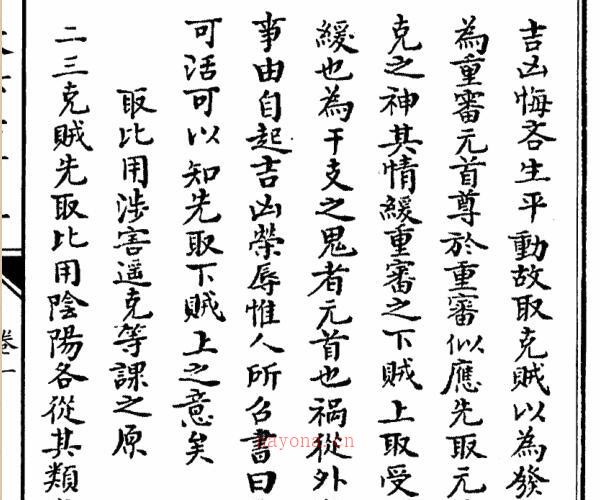 吉凶悔吝生乎動故取克賊以為發
為重審元首尊於重審似應先取元
克之神其情緩重審之下賊上取受
緩也為干支之鬼者元首也禍從外
事由自起吉凶榮辱惟人所召書曰
可活可以知先取下賊上之意矣
取比用涉害遥克等課之原
二三克賊先取比用陰陽各從其類
卷一